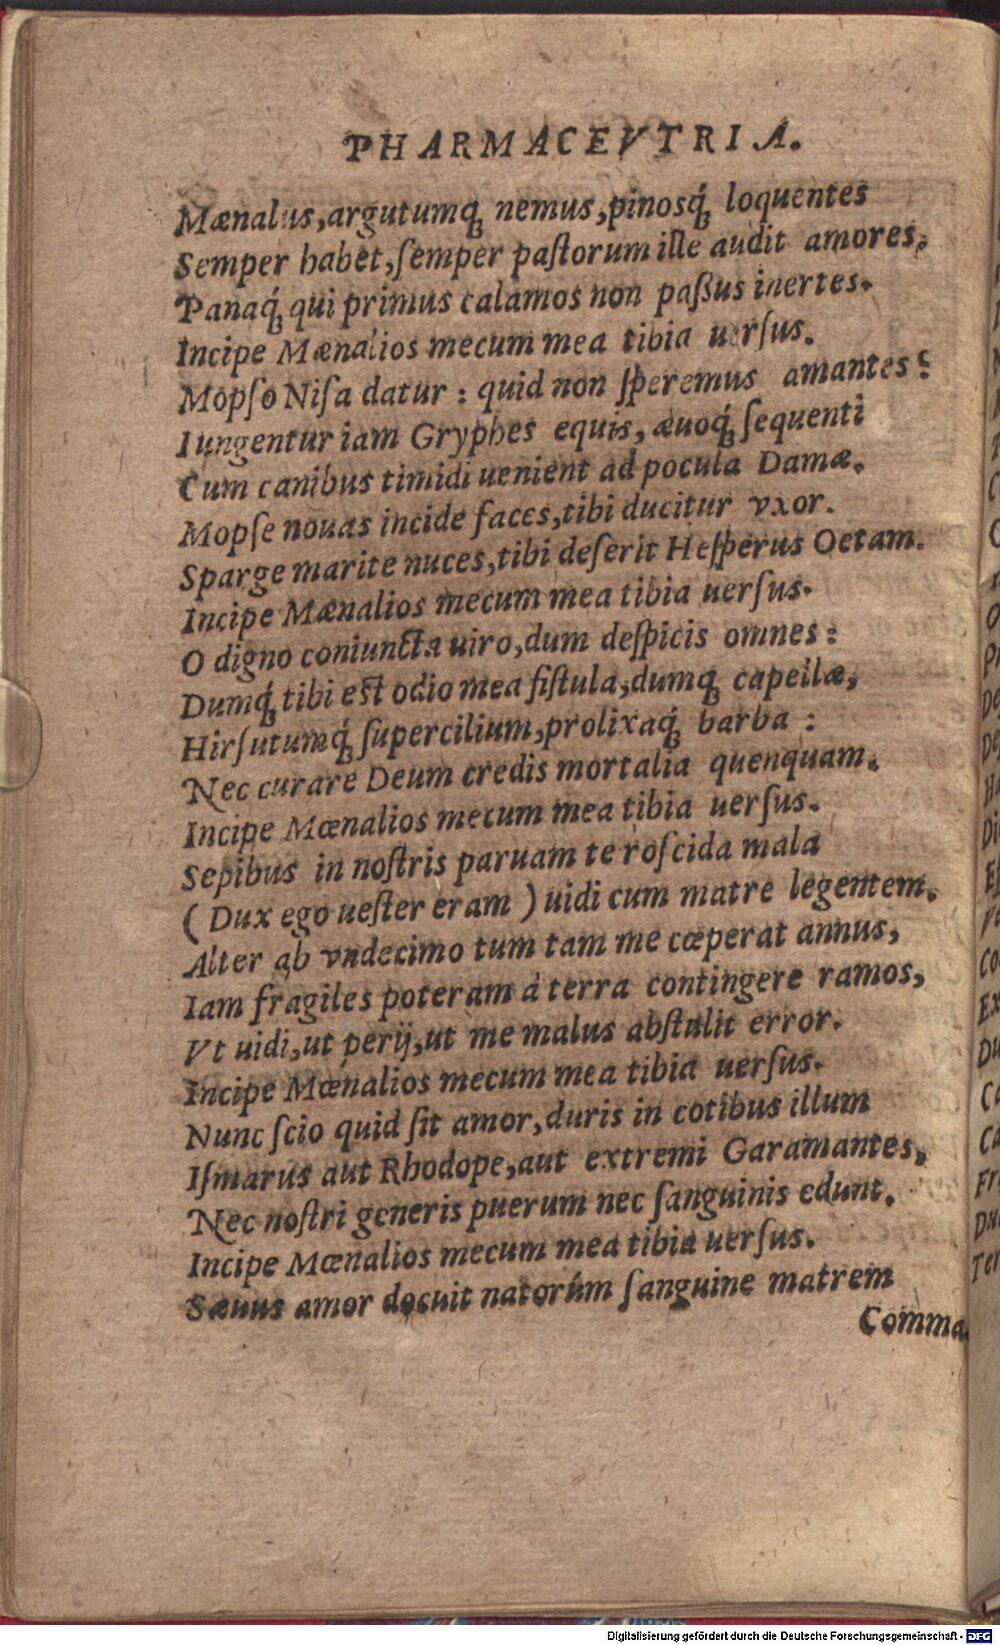 PHARMACEVTRIA.
Mænalus, argutumq́; nemus, pinosq́; loquentes
Semper habet, ſemper paſtorum ille audit amores,
Panaq́; qui primus calamos non paßus inertes.
Incipe Mænalios mecum mea tibia uerſus.
Mopſo Niſa datur: quid non ſperemus amantes?
Iungentur iam Gryphes equis, æuoq́; ſequenti
Cum canibus timidi uenient ad pocula Damæ.
Mopſe nouas incide faces, tibi ducitur vxor.
Sparge marite nuces, tibi deſerit Heſperus Oetam.
Incipe Mænalios mecum mea tibia uerſus.
O digno coniuncta uiro, dum deſpicis omnes:
Dumq́; tibi eſt odio mea fiſtula, dumq́; capellæ,
Hirſutumq́; ſupercilium, prolixaq́; barba:
Nec curare Deum credis mortalia quenquam.
Incipe Mœnalios mecum mea tibia uerſus.
Sepibus in noſtris paruam te roſcida mala
(Dux ego ueſter eram) uidi cum matre legentem.
Alter ab vndecimo tum tam me cœperat annus,
Iam fragiles poteram à terra contingere ramos,
Vt uidi, ut perij, ut me malus abſtulit error.
Incipe Mœnalios mecum mea tibia uerſus.
Nunc ſcio quid ſit amor, duris in cotibus illum
Iſmarus aut Rhodope, aut extremi Garamantes,
Nec noſtri generis puerum nec ſanguinis edunt.
Incipe Mœnalios mecum mea tibia uerſus.
Sæuus amor docuit natorúm ſanguine matrem
Comma
Digitalisierung gefördert durch die Deutsche Forschungsgemeinschaft - DFG